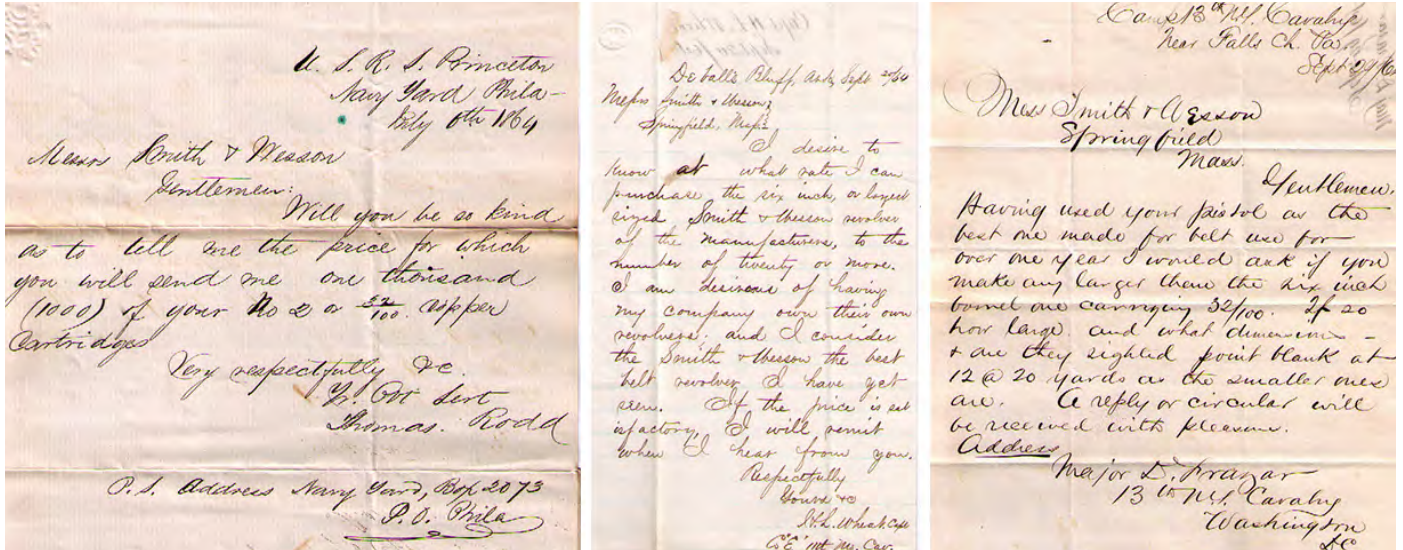 U. S. R. S. Princeton
Navy Yard Phila-
July 6th 1864
Messrs Smith & Wesson
Gentlemen:
Will you be so kind
as to tell me the price for which
you will send me one thousand
(1000) of your No 2 or 32/100. copper
Cartridges
Very respectfully &c.
Yr. Obt Servt
Thomas. Rodd
P. S. Address Navy Yard, Box 2073
P. O. Phila
De valls Bluff, Ark, Sept 20/64
Messrs Smith & Wesson,
Springfield, Mass
I desire to
know at what rate I can
purchase the six inch, or largest
sized Smith & Wesson revolver
of the manufacturers, to the
number of twenty or more.
I am desirous of having
my company own their own
revolvers, and I consider
the Smith & Wesson the best
belt revolver I have yet
seen. If the price is sat
isfactory, I will remit
when I hear from you.
Respectfully
Yours &c
H. L. Wheat, Capt
Co "E" 1st Mo. Cav.
Camp 13th N.Y. Cavalry
Near Falls Ch. Va.
Sept 29/6
Mess Smith & Wesson
Springfield
Mass.
Gentlemen.
Having used your pistol as the
best one made for belt use for
over one year I would ask if you
make any larger than the six inch
barrel one carrying 32/100. If so
how large. and what dimensions -
& are they sighted point blank at
12 @ 20 yards as the smaller ones
are. A reply or circular will
be received with pleasure.
Address
Major D. Frazar
13th N.Y. Cavalry
Washington
DC